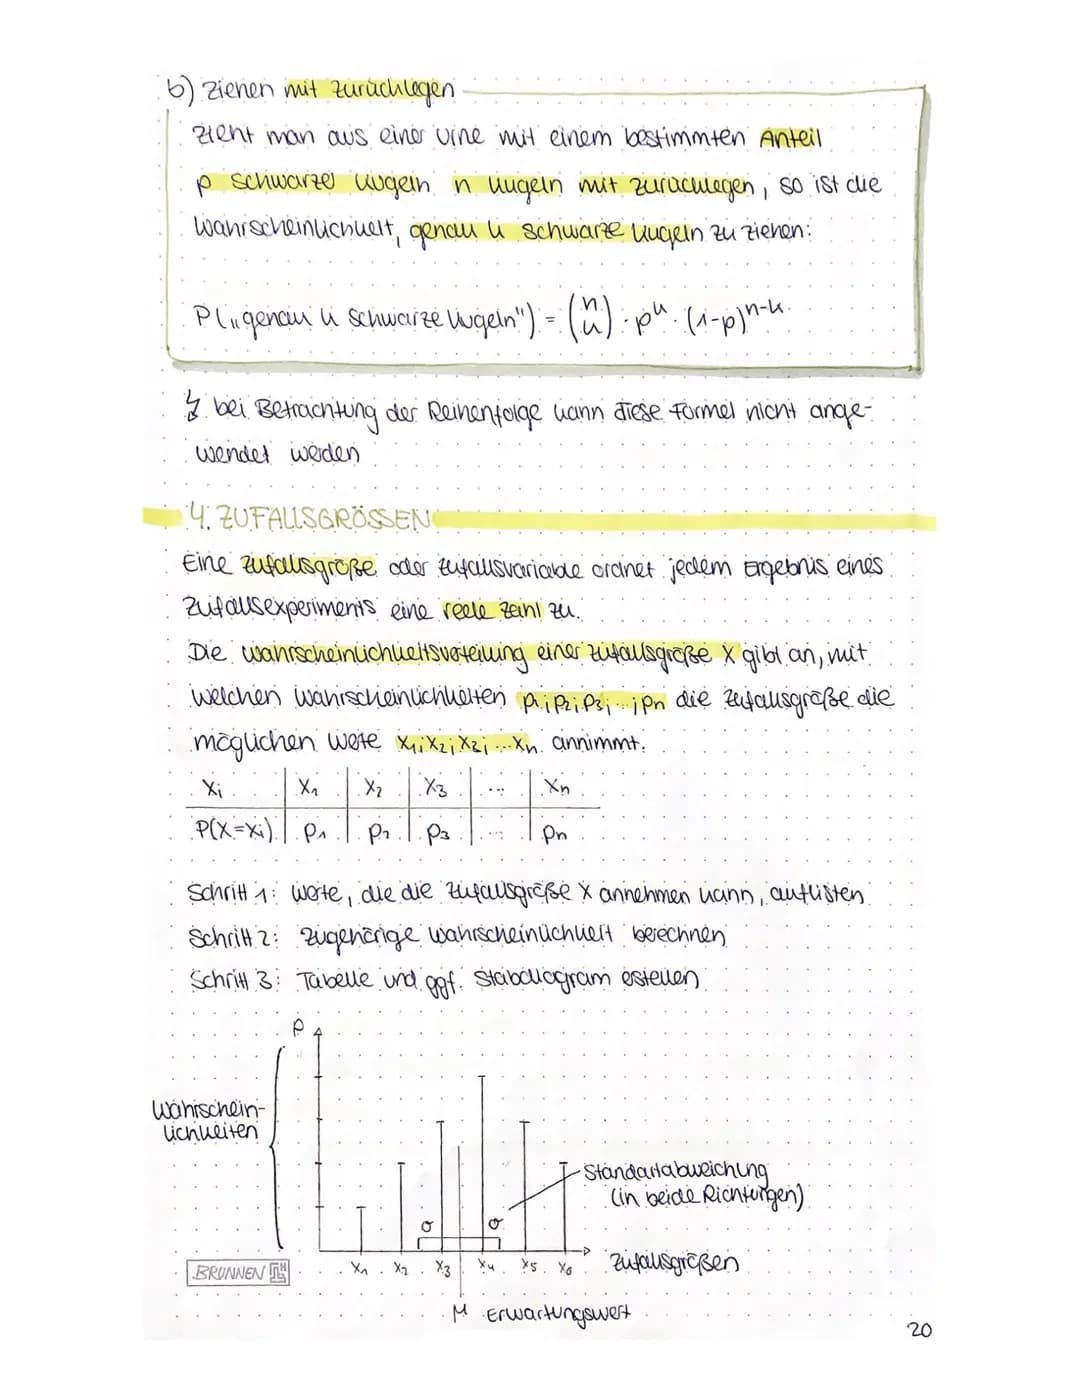 b) Ziehen mit Zurücklegen
Zieht man aus einer Urne mit einem bestimmten Anteil
p schwarzer Kugeln n Kugeln mit Zurücklegen, so ist die
Wahrscheinlichkeit, genau k schwarze Kugeln zu ziehen:
P(„genau k schwarze Kugeln") = (n k) · p^k · (1-p)^n-k
↯ bei Betrachtung der Reihenfolge kann diese Formel nicht ange-
wendet werden
4. ZUFALLSGRÖSSEN
Eine Zufallsgröße oder Zufallsvariable ordnet jedem Ergebnis eines
Zufallsexperiments eine reelle Zahl zu.
Die Wahrscheinlichkeitsverteilung einer Zufallsgröße X gibt an, mit
welchen Wahrscheinlichkeiten p₁; p₂; p₃; ...; pn die Zufallsgröße die
möglichen Werte x₁; x₂; x₃; ... xn annimmt.
xi x₁ x₂ x₃ ... xn
P(X=xi) p₁ p₂ p₃ ... pn
Schritt 1: Werte, die die Zufallsgröße X annehmen kann, auflisten
Schritt 2: Zugehörige Wahrscheinlichkeit berechnen
Schritt 3: Tabelle und ggf. Stabdiagram erstellen
P
Wahrschein-
lichkeiten
Standartabweichung
(in beide Richtungen)
σ σ
x₁ x₂ x₃ x₄ x₅ x₆ Zufallsgrößen
BRUNNEN
μ Erwartungswert
20